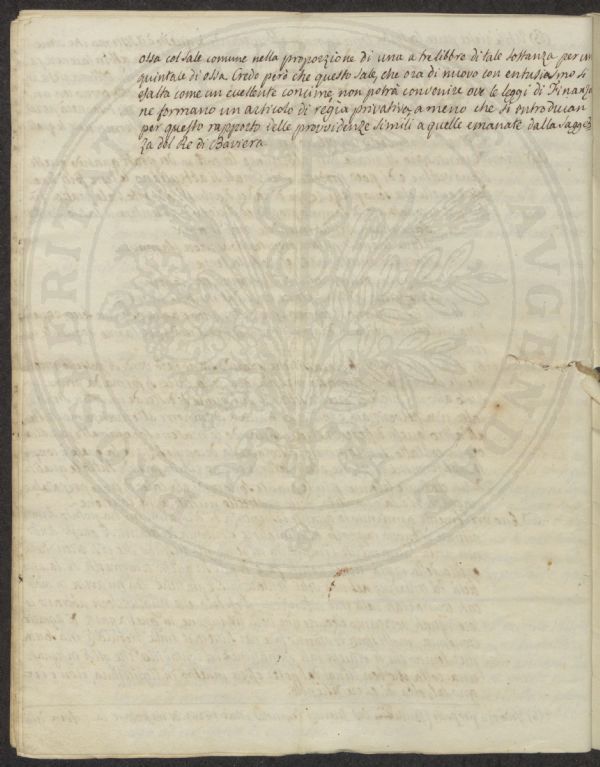 ossa col sale comune nella proporzione di una a tre libbre di tale sostanza per un
quintale di ossa. Credo però che questo sale, che ora di nuovo con entusiasmo si
esalta come un eccellente concime, non potrà convenire ove le leggi di Finanza
ne formano un articolo di regia privativa, a meno che si introducan
per questo rapporto delle provvidenze simili a quelle emanate dalla saggez
za del Re di Baviera.
PROSPERITATI AUGENDAE